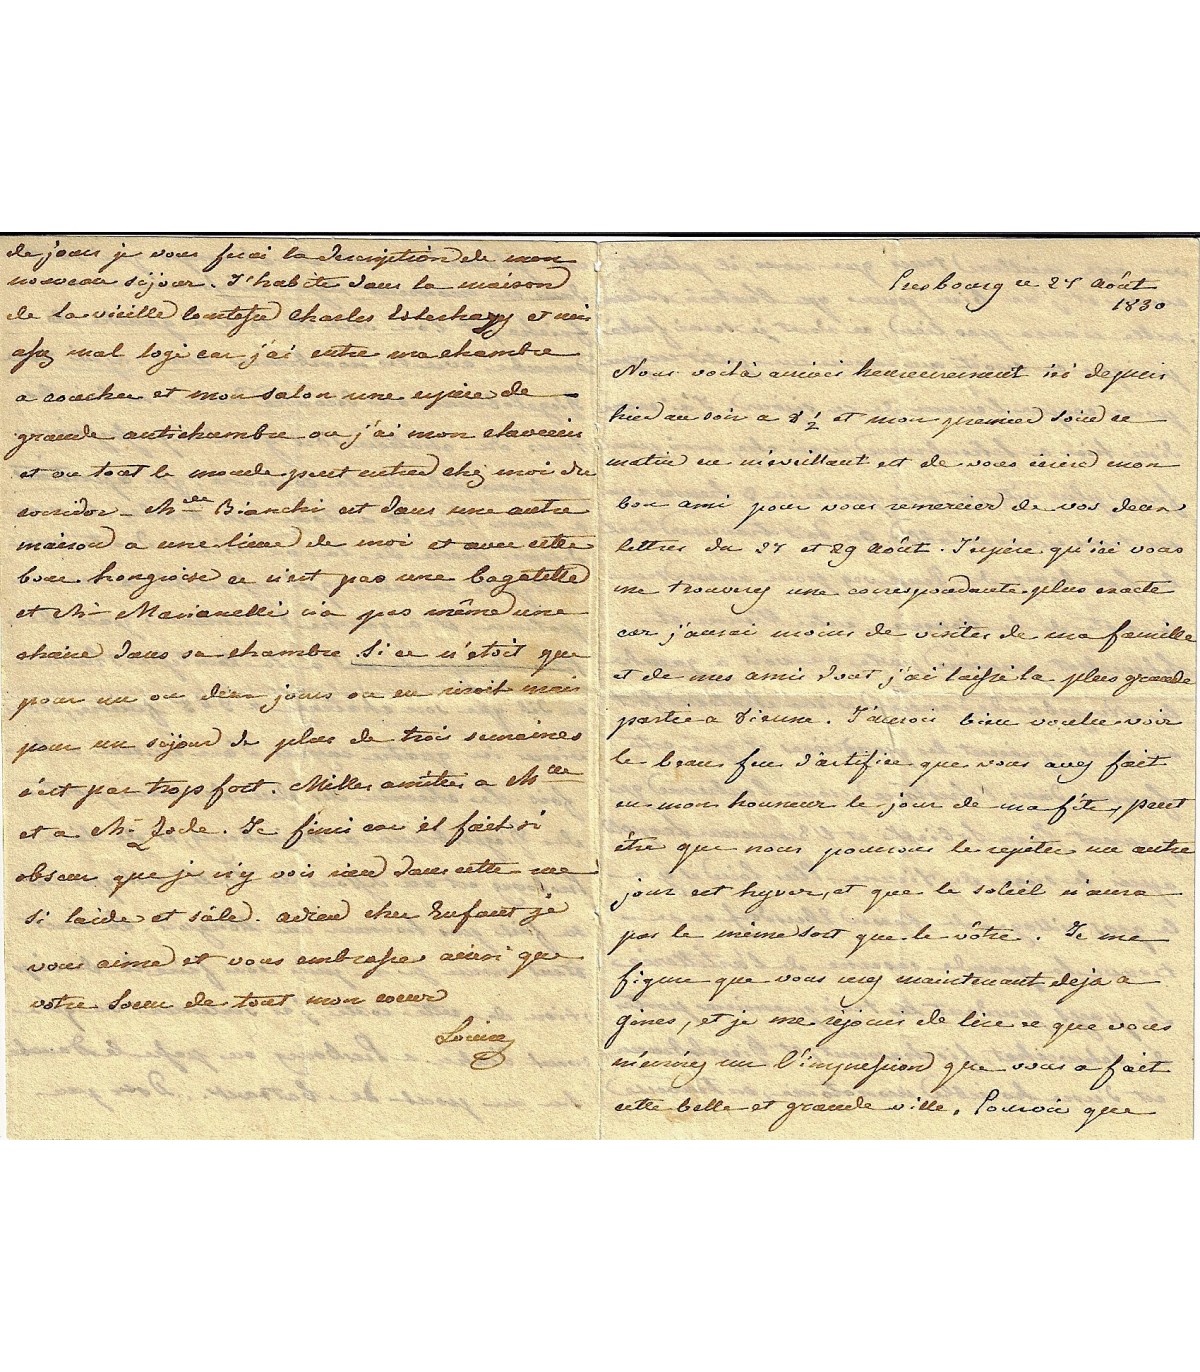 Presbourg ce 27 Août
1830
Nous voilà arrivés heureusement ici depuis
hier au soir a 8 1/2 et mon premier soin ce
matin en m'éveillant est de vous écrire mon
bon ami pour vous remercier de vos deux
lettres du 27 et 29 Août. J'espère qu'ici vous
me trouverez une correspondante plus exacte
car j'aurai moins de visites de ma famille
et de mes amis dont j'ai laissé la plus grande
partie a Vienne. J'aurois bien voulu voir
le beau feu d'artifice que vous avez fait
en mon honneur le jour de ma fête, peut
être que nous pourrons le répéter un autre
jour cet hyver, et que le soleil n'aura
pas le même sort que le vôtre. Je me
figure que vous etes maintenant deja a
Gênes, et je me réjouis de lire ce que vous
m'écrirez sur l'impression que vous a fait
cette belle et grande ville. Pourvu que
de jours je vous ferai la description de mon
nouveau séjour. J'habite dans la maison
de la vieille Comtesse Charles Esterhazy et suis
assez mal logé car j'ai entre ma chambre
a coucher et mon salon une espèce de
grande antichambre ou j'ai mon clavecin
et ou tout le monde peut entrer chez moi du
corridor - Mlle Bianchi est dans une autre
maison a une lieue de moi et avec cette
boue hongroise ce n'est pas une bagatelle
et Mr Marianelli n'a pas même une
chaise dans sa chambre. Si ce n'étoit que
pour un ou deux jours on en riroit mais
pour un séjour de plus de trois semaines
c'est par trop fort. Milles amitiés a Mlle
et a Mr Zode. Je finis car il fait si
obscur que je n'y vois rien dans cette rue
si laide et sâle. adieu cher Enfant je
vous aime et vous embrasse ainsi que
votre Soeur de tout mon coeur
Louise